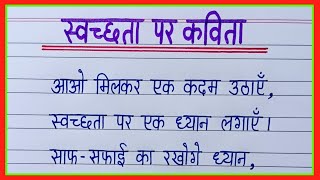 स्वच्छता पर कविता
आओ मिलकर एक कदम उठाएँ,
स्वच्छता पर एक ध्यान लगाएँ।
साफ-सफाई का रखोगे ध्यान,